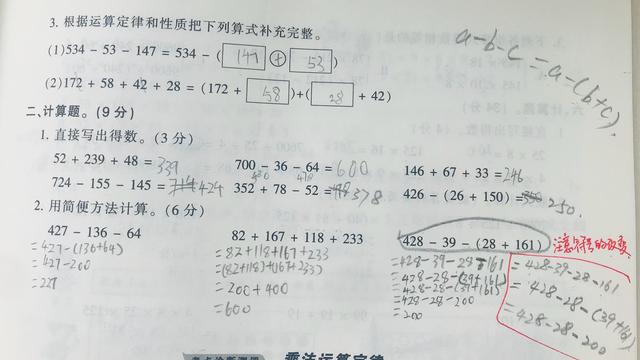 3. 根据运算定律和性质把下列算式补充完整。
(1)534 - 53 - 147 = 534 - ( 147 + 53 )
a-b-c = a-(b+c).
(2)172 + 58 + 42 + 28 = (172 + 58 )+( 28 + 42)
二、计算题。(9 分)
1. 直接写出得数。(3 分)
52 + 239 + 48 = 339 700 - 36 - 64 = 600 146 + 67 + 33 = 246
724 - 155 - 145 = 424 352 + 78 - 52 = 378 426 - (26 + 150) = 250.
2. 用简便方法计算。(6 分)
427 - 136 - 64 82 + 167 + 118 + 233 428 - 39 - (28 + 161)
=427-(136+64) =82+118+167+233 =428-39-28-161 =428-39-28-161
=427-200 =(82+118)+(167+233) =428-28-(39+161) =428-28-(39+161)
=227 =200+400 =428-28-(39+161) =428-28-200
=600 =428-28-200
=200
乘法运算定律